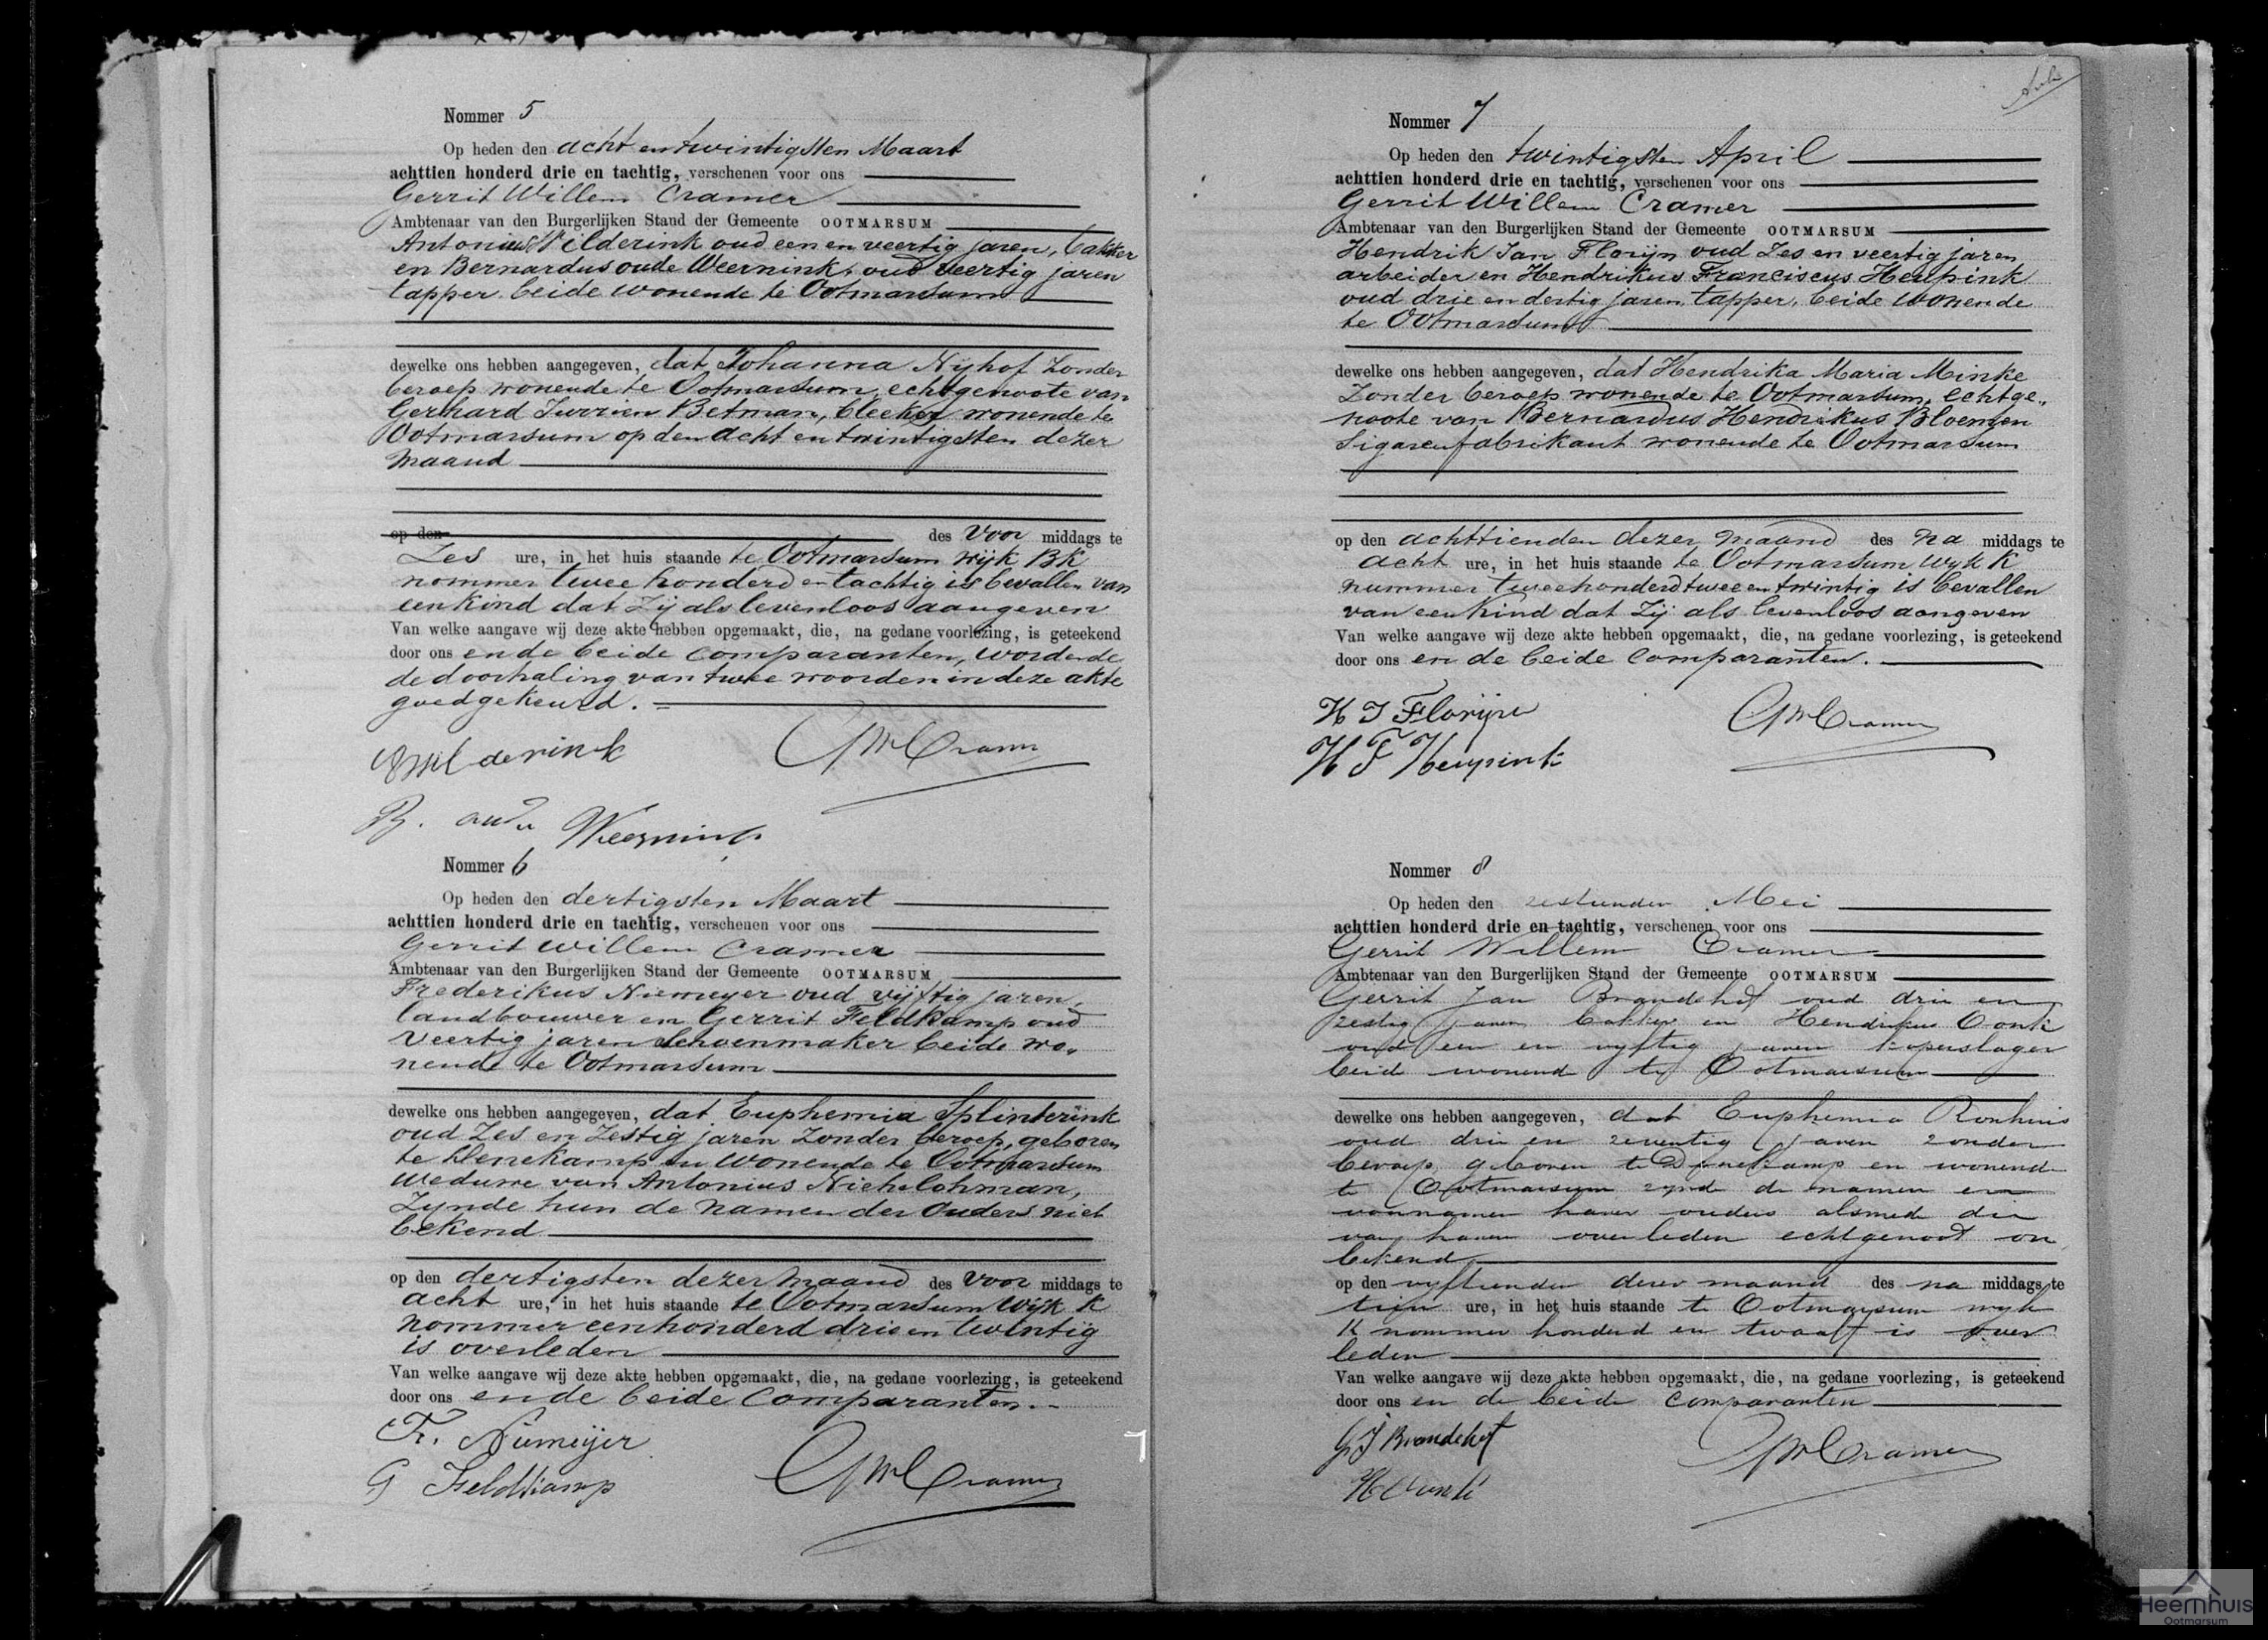 Nommer 5
Op heden den acht en twintigsten Maart
achttien honderd drie en tachtig, verschenen voor ons
Gerrit Willem Cramer
Ambtenaar van den Burgerlijken Stand der Gemeente OOTMARSUM
Antonius Wilderink oud een en veertig jaren, bakker
en Bernardus oude Weernink, oud veertig jaren
tapper beide wonende te Ootmarsum
dewelke ons hebben aangegeven, dat Johanna Nijhof zonder
beroep wonende te Ootmarsum, echtgenoote van
Gerhard Jurrien Betman, bleeker wonende te
Ootmarsum op den acht en twintigsten dezer
maand
op den des voor middags te
Zes ure, in het huis staande te Ootmarsum wijk BK
nommer twee honderd en tachtig is bevallen van
een kind dat zij als levenloos aangeven
Van welke aangave wij deze akte hebben opgemaakt, die, na gedane voorlezing, is geteekend
door ons en de beide comparanten, wordende
de doorhaling van twee woorden in deze akte
goedgekeurd.
Wilderink GWCramer
B. oude Weernink
Nommer 6
Op heden den dertigsten Maart
achttien honderd drie en tachtig, verschenen voor ons
Gerrit Willem Cramer
Ambtenaar van den Burgerlijken Stand der Gemeente OOTMARSUM
Frederikus Niemeyer oud vijftig jaren,
landbouwer en Gerrit Feldkamp oud
veertig jaren schoenmaker beide wo„
nende te Ootmarsum
dewelke ons hebben aangegeven, dat Euphemia Splinterink
oud Zes en Zestig jaren zonder beroep, geboren
te Denekamp en wonende te Ootmarsum
weduwe van Antonius
Zijnde hun de namen der Ouders niet
bekend
op den dertigsten dezer maand des voor middags te
acht ure, in het huis staande te Ootmarsum Wijk K
nommer eenhonderd drie en twintig
is overleden
Van welke aangave wij deze akte hebben opgemaakt, die, na gedane voorlezing, is geteekend
door ons en de beide comparanten.
Fr. Niemeijer
G Feldkamp GWCramer
Nommer 7
Op heden den twintigsten April
achttien honderd drie en tachtig, verschenen voor ons
Gerrit Willem Cramer
Ambtenaar van den Burgerlijken Stand der Gemeente OOTMARSUM
Hendrik Jan Florijn oud Zes en veertig jaren
arbeider en Hendrikus Franciscus Heupink
oud drie en dertig jaren, tapper, beide wonende
te Ootmarsum
dewelke ons hebben aangegeven, dat Hendrika Maria Minke
Zonder beroep wonende te Ootmarsum, echtge„
noote van Bernardus Hendrikus Bloemen
Sigarenfabrikant wonende te Ootmarsum
op den achttienden dezer maand des na middags te
acht ure, in het huis staande te Ootmarsum Wyk K
nummer tweehonderd twee en twintig is bevallen
van een kind dat zij als levenloos aangeven
Van welke aangave wij deze akte hebben opgemaakt, die, na gedane voorlezing, is geteekend
door ons en de beide comparanten.
H J Florijn GWCramer
H F Heupink
Nommer 8
Op heden den zestienden Mei
achttien honderd drie en tachtig, verschenen voor ons
Gerrit Willem Cramer
Ambtenaar van den Burgerlijken Stand der Gemeente OOTMARSUM
Gerrit Jan Brandehof oud drie en
zestig jaren bakker en Hendrikus Vonk
oud een en vyftig jaren koperslager
beide wonende te Ootmarsum
dewelke ons hebben aangegeven, dat Euphemia Ronhuis
oud drie en zeventig jaren zonder
beroep, geboren te Denekamp en wonende
te Ootmarsum zynde de namen en
voornamen harer ouders alsmede die
van haren overleden echtgenoot on
bekend
op den vyftienden dezer maand des na middags te
tien ure, in het huis staande te Ootmarsum wyk
K nommer honderd en twaalf is over
leden
Van welke aangave wij deze akte hebben opgemaakt, die, na gedane voorlezing, is geteekend
door ons en de beide comparanten
GJ Brandehof GWCramer
H Vonk
Heemhuis
Ootmarsum